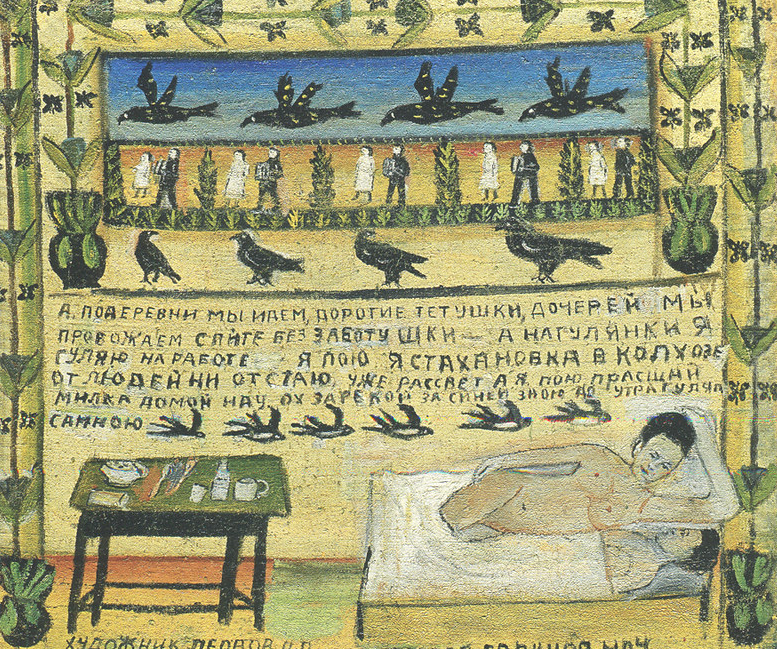 А, ПОДЕРЕВНИ МЫ ИДЕМ, ДОРОГИЕ ТЕТУШКИ, ДОЧЕРЕЙ МЫ
ПРОВОЖАЕМ СПИТЕ БЕЗ ЗАБОТУШКИ — А НАГУЛЯНКИ Я
ГУЛЯЮ НА РАБОТЕ Я ПОЮ Я СТАХАНОВКА В КОЛХОЗЕ
ОТ ЛЮДЕЙ НИ ОТСТАЮ, УЖЕ РАССВЕТ А Я ПОЮ ПРАСЩАЙ
МИЛКА ДОМОЙ ИДУ. ОХ ЗА РЕКОЙ ЗА СИНЕЙ ЗНОЮ ДО УТРА ГУЛЯЛ
САМНОЮ
ХУДОЖНИК